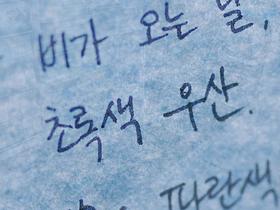 비가 오는 날,
초록색 우산.
파란색